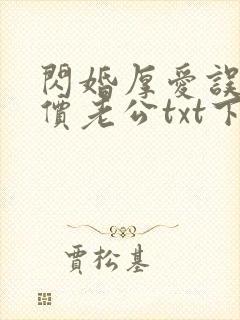 閃婚厚愛誤
價老公txt下
賈松基